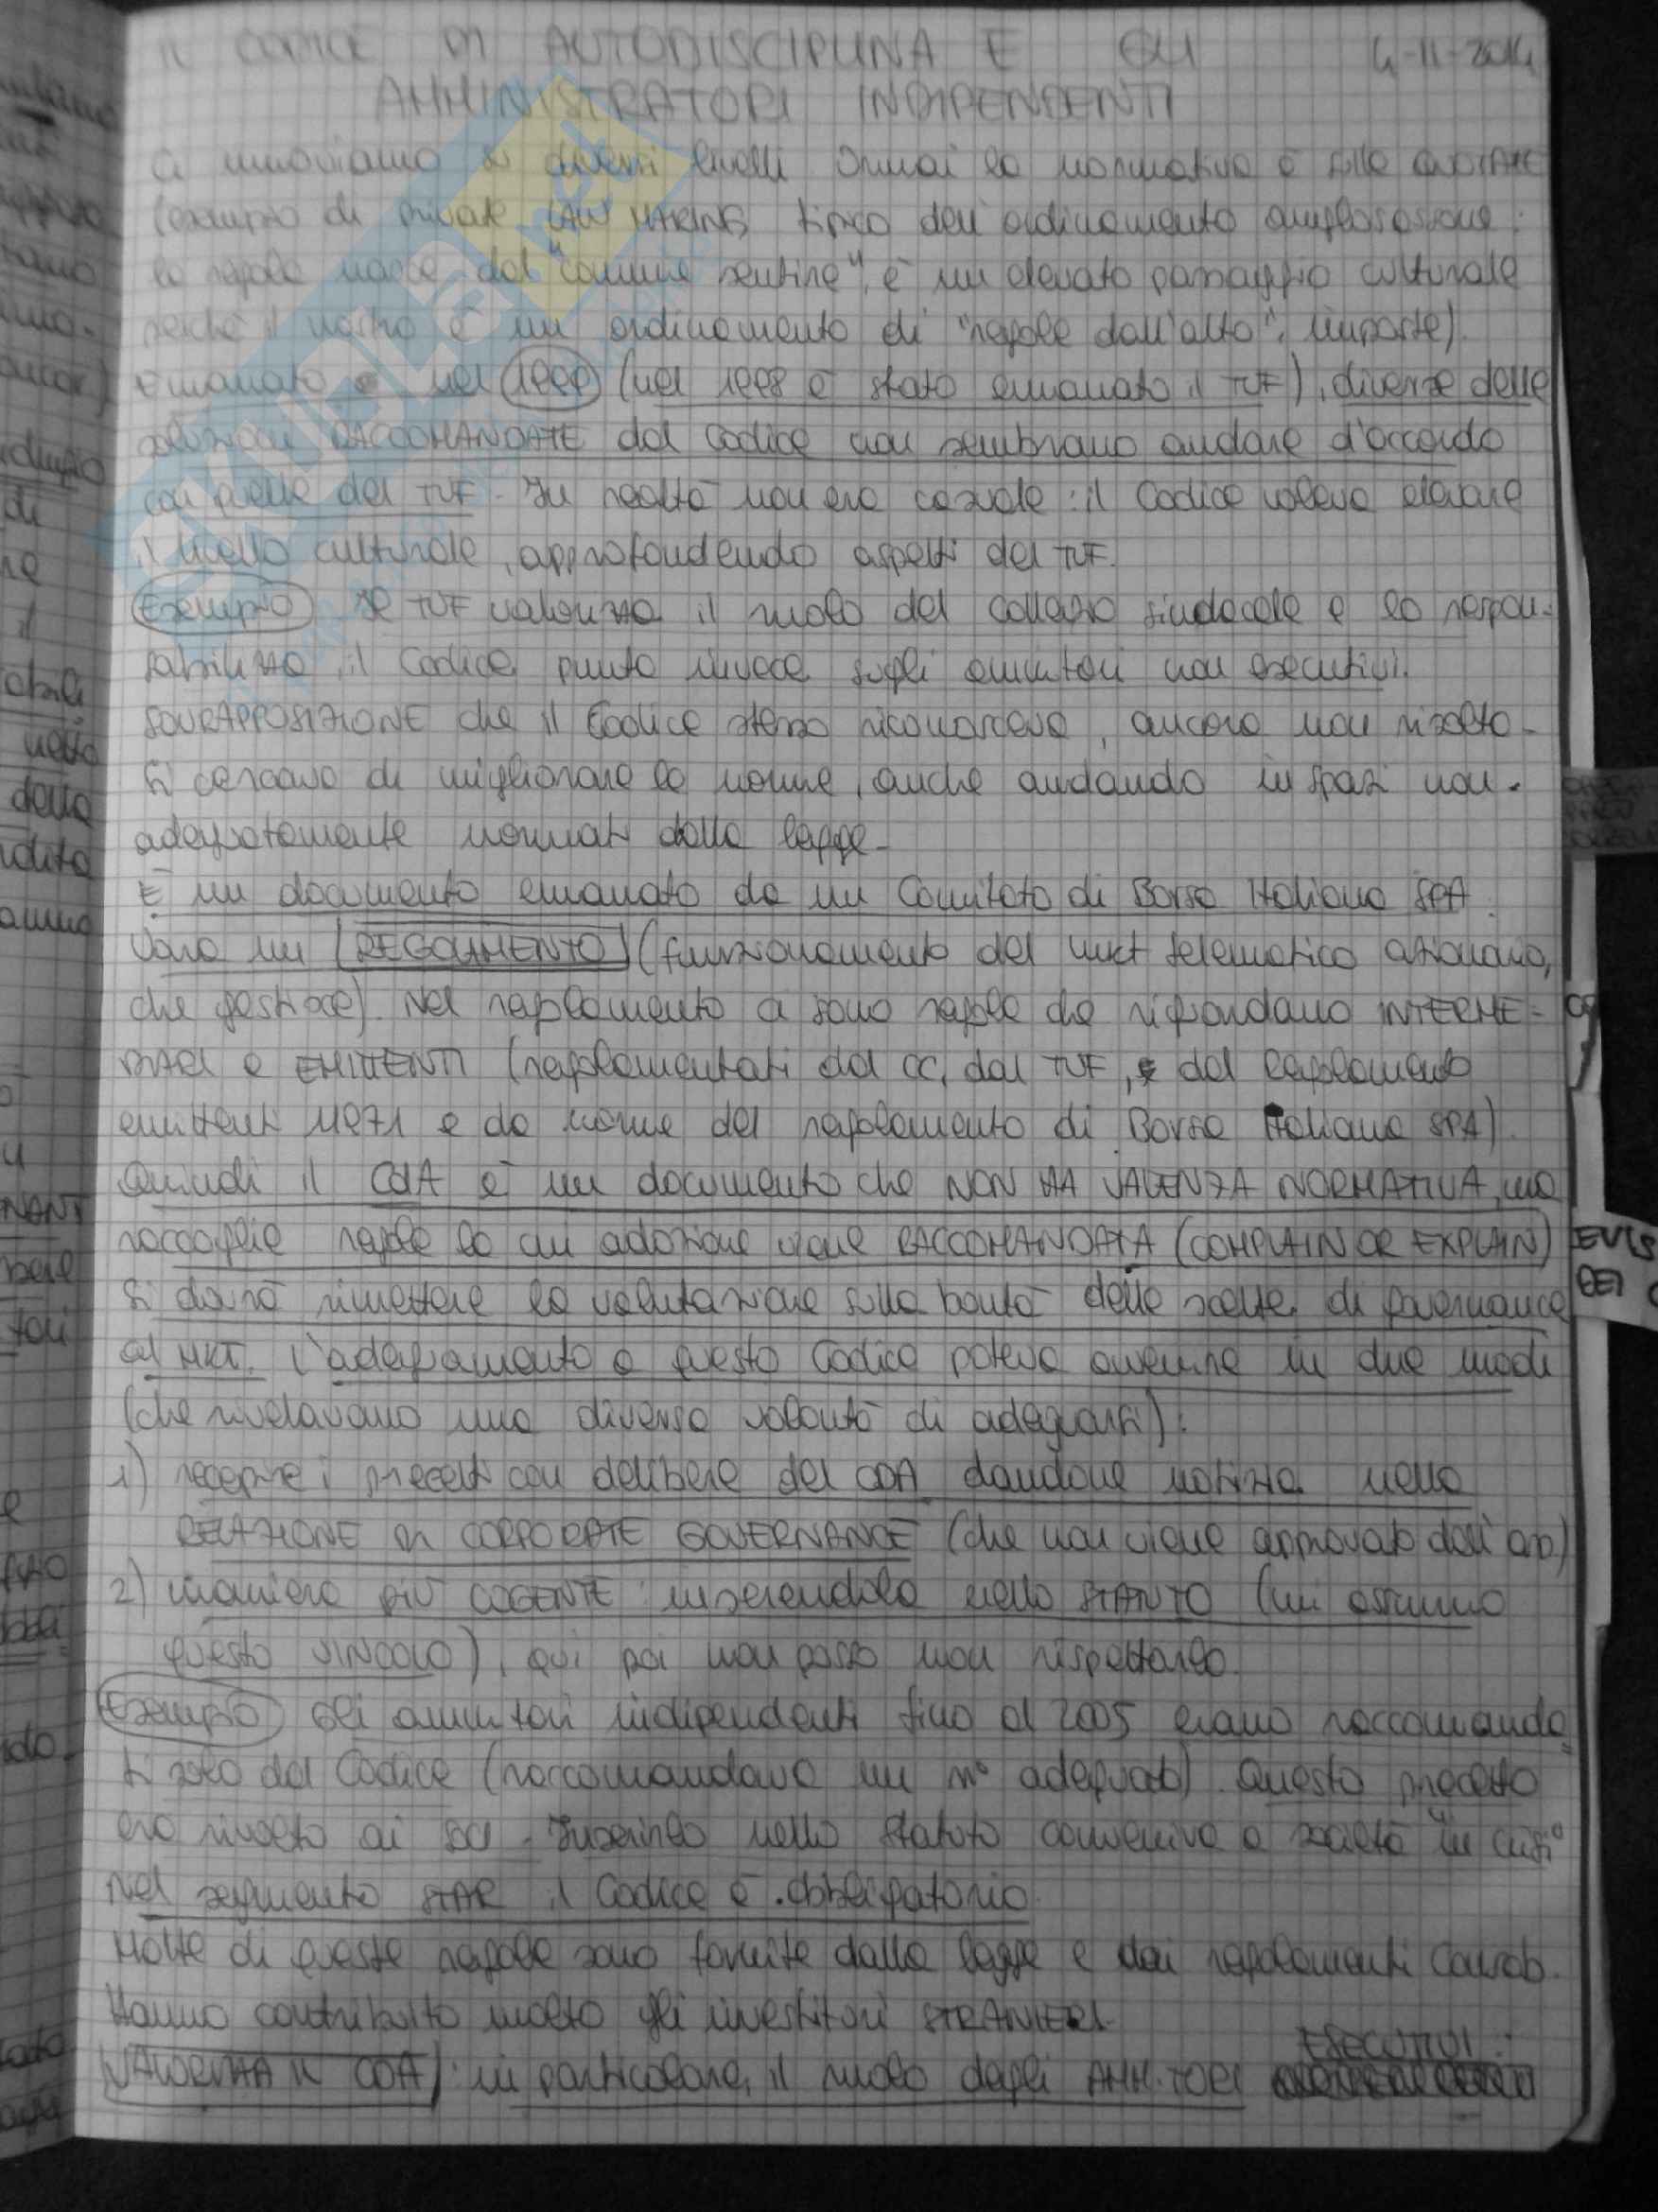 IL CODICE DI AUTODISCIPLINA E GLI 4-11-2014
AMMINISTRATORI INDIPENDENTI
Ci muoviamo su diversi livelli. Ormai la normativa è sulle QUOTATE
(esempio di private LAW MAKING tipico dell'ordinamento anglosassone:
la regola nasce dal "comune sentire", è un elevato passaggio culturale
perché il nostro è un ordinamento di "regole dall'alto", imposte).
Emanato è nel 1999 (nel 1998 è stato emanato il TUF), diverse delle
soluzioni RACCOMANDATE dal Codice non sembrano andare d'accordo
con quelle del TUF. In realtà non era casuale: il Codice voleva elevare
il livello culturale, approfondendo aspetti del TUF.
Esempio Il TUF valorizza il ruolo del collegio sindacale e lo respon-
sabilizza, il Codice punta invece sugli amm.tori non esecutivi.
SOVRAPPOSIZIONE che il Codice stesso riconosceva, ancora non risolta.
Si cercava di migliorare le norme, anche andando in spazi non
adeguatamente normati dalla legge.
È un documento emanato da un Comitato di Borsa Italiana SPA.
Vara un REGOLAMENTO (funzionamento del mkt telematico azionario,
che gestisce). Nel regolamento ci sono regole che riguardano INTERME=
DIARI e EMITTENTI (regolamentati dal CC, dal TUF, dal Regolamento
emittenti 11971 e da norme del regolamento di Borsa Italiana SPA).
Quindi il CdA è un documento che NON HA VALENZA NORMATIVA, ma
raccoglie regole la cui adozione viene RACCOMANDATA (COMPLAIN OR EXPLAIN)
Si dovrà rimettere la valutazione sulla bontà delle scelte di governance
al MKT. L'adeguamento a questo Codice poteva avvenire in due modi
(che rivelavano una diversa volontà di adeguarsi):
1) recepire i precetti con delibere del CDA dandone notizia nella
RELAZIONE DI CORPORATE GOVERNANCE (che non viene approvata dall'ass.)
2) maniera più COGENTE: inserendola nello STATUTO (mi assumo
questo VINCOLO), qui poi non posso non rispettarlo.
Esempio Gli amm.tori indipendenti fino al 2005 erano raccomanda=
ti solo dal Codice (raccomandava un n° adeguato). Questo precetto
era rivolto ai soci. Inserirlo nello statuto conveniva a società "in crisi"
Nel segmento STAR il Codice è obbligatorio.
Molte di queste regole sono fornite dalla legge e dai regolamenti Consob.
Hanno contribuito molto gli investitori STRANIERI.
VALORIZZA IL CDA: in particolare, il ruolo degli AMM.TORI ESECUTIVI: